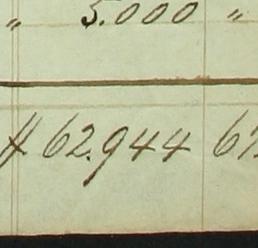 " 5.000 "
62.944 6